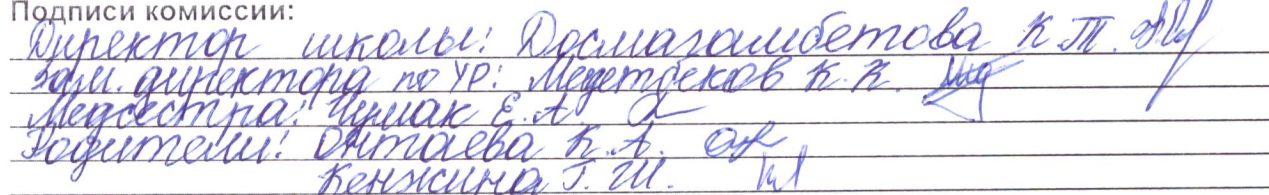 Подписи комиссии:
Директор школы: Досмагамбетова К.Т.
Зам. директора по УР: Медетбеков К.К.
Медсестра: Чумак Е.А.
Родители: Онтаева К.А.
Кенжина Г.Ш.